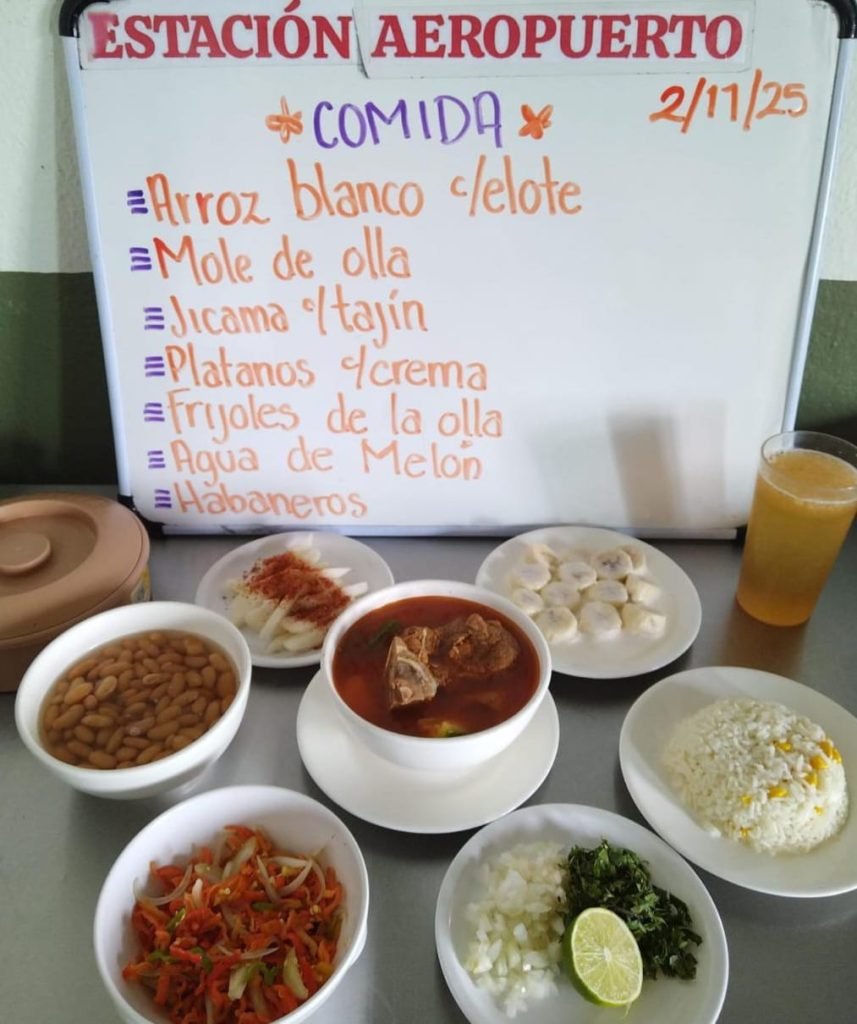 ESTACIÓN AEROPUERTO
2/11/25
COMIDA
Arroz blanco c/elote
Mole de olla
Jicama c/tajín
Platanos c/crema
Frijoles de la olla
Agua de Melón
Habaneros